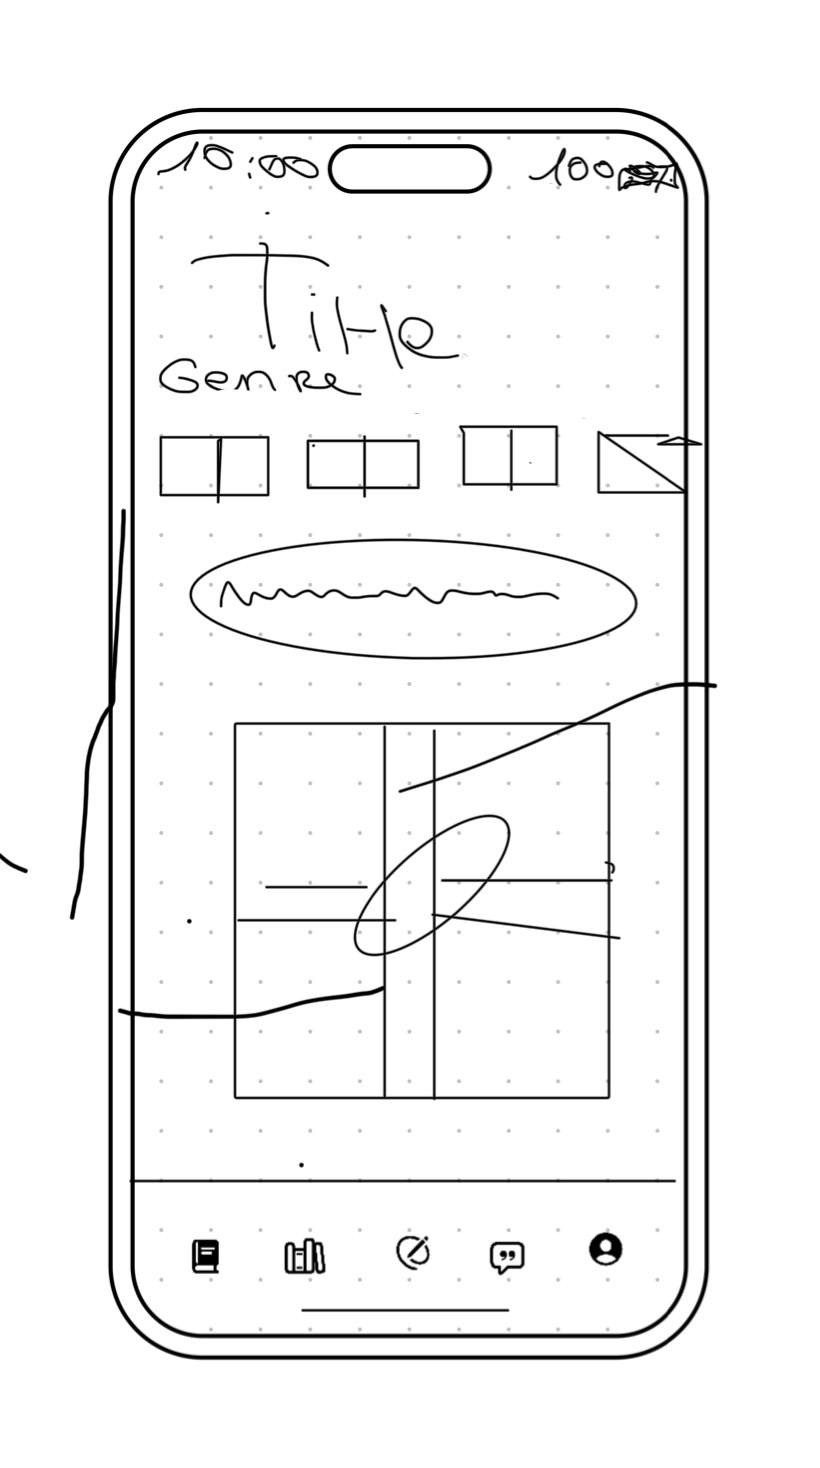 10:00 100
Title
Genre